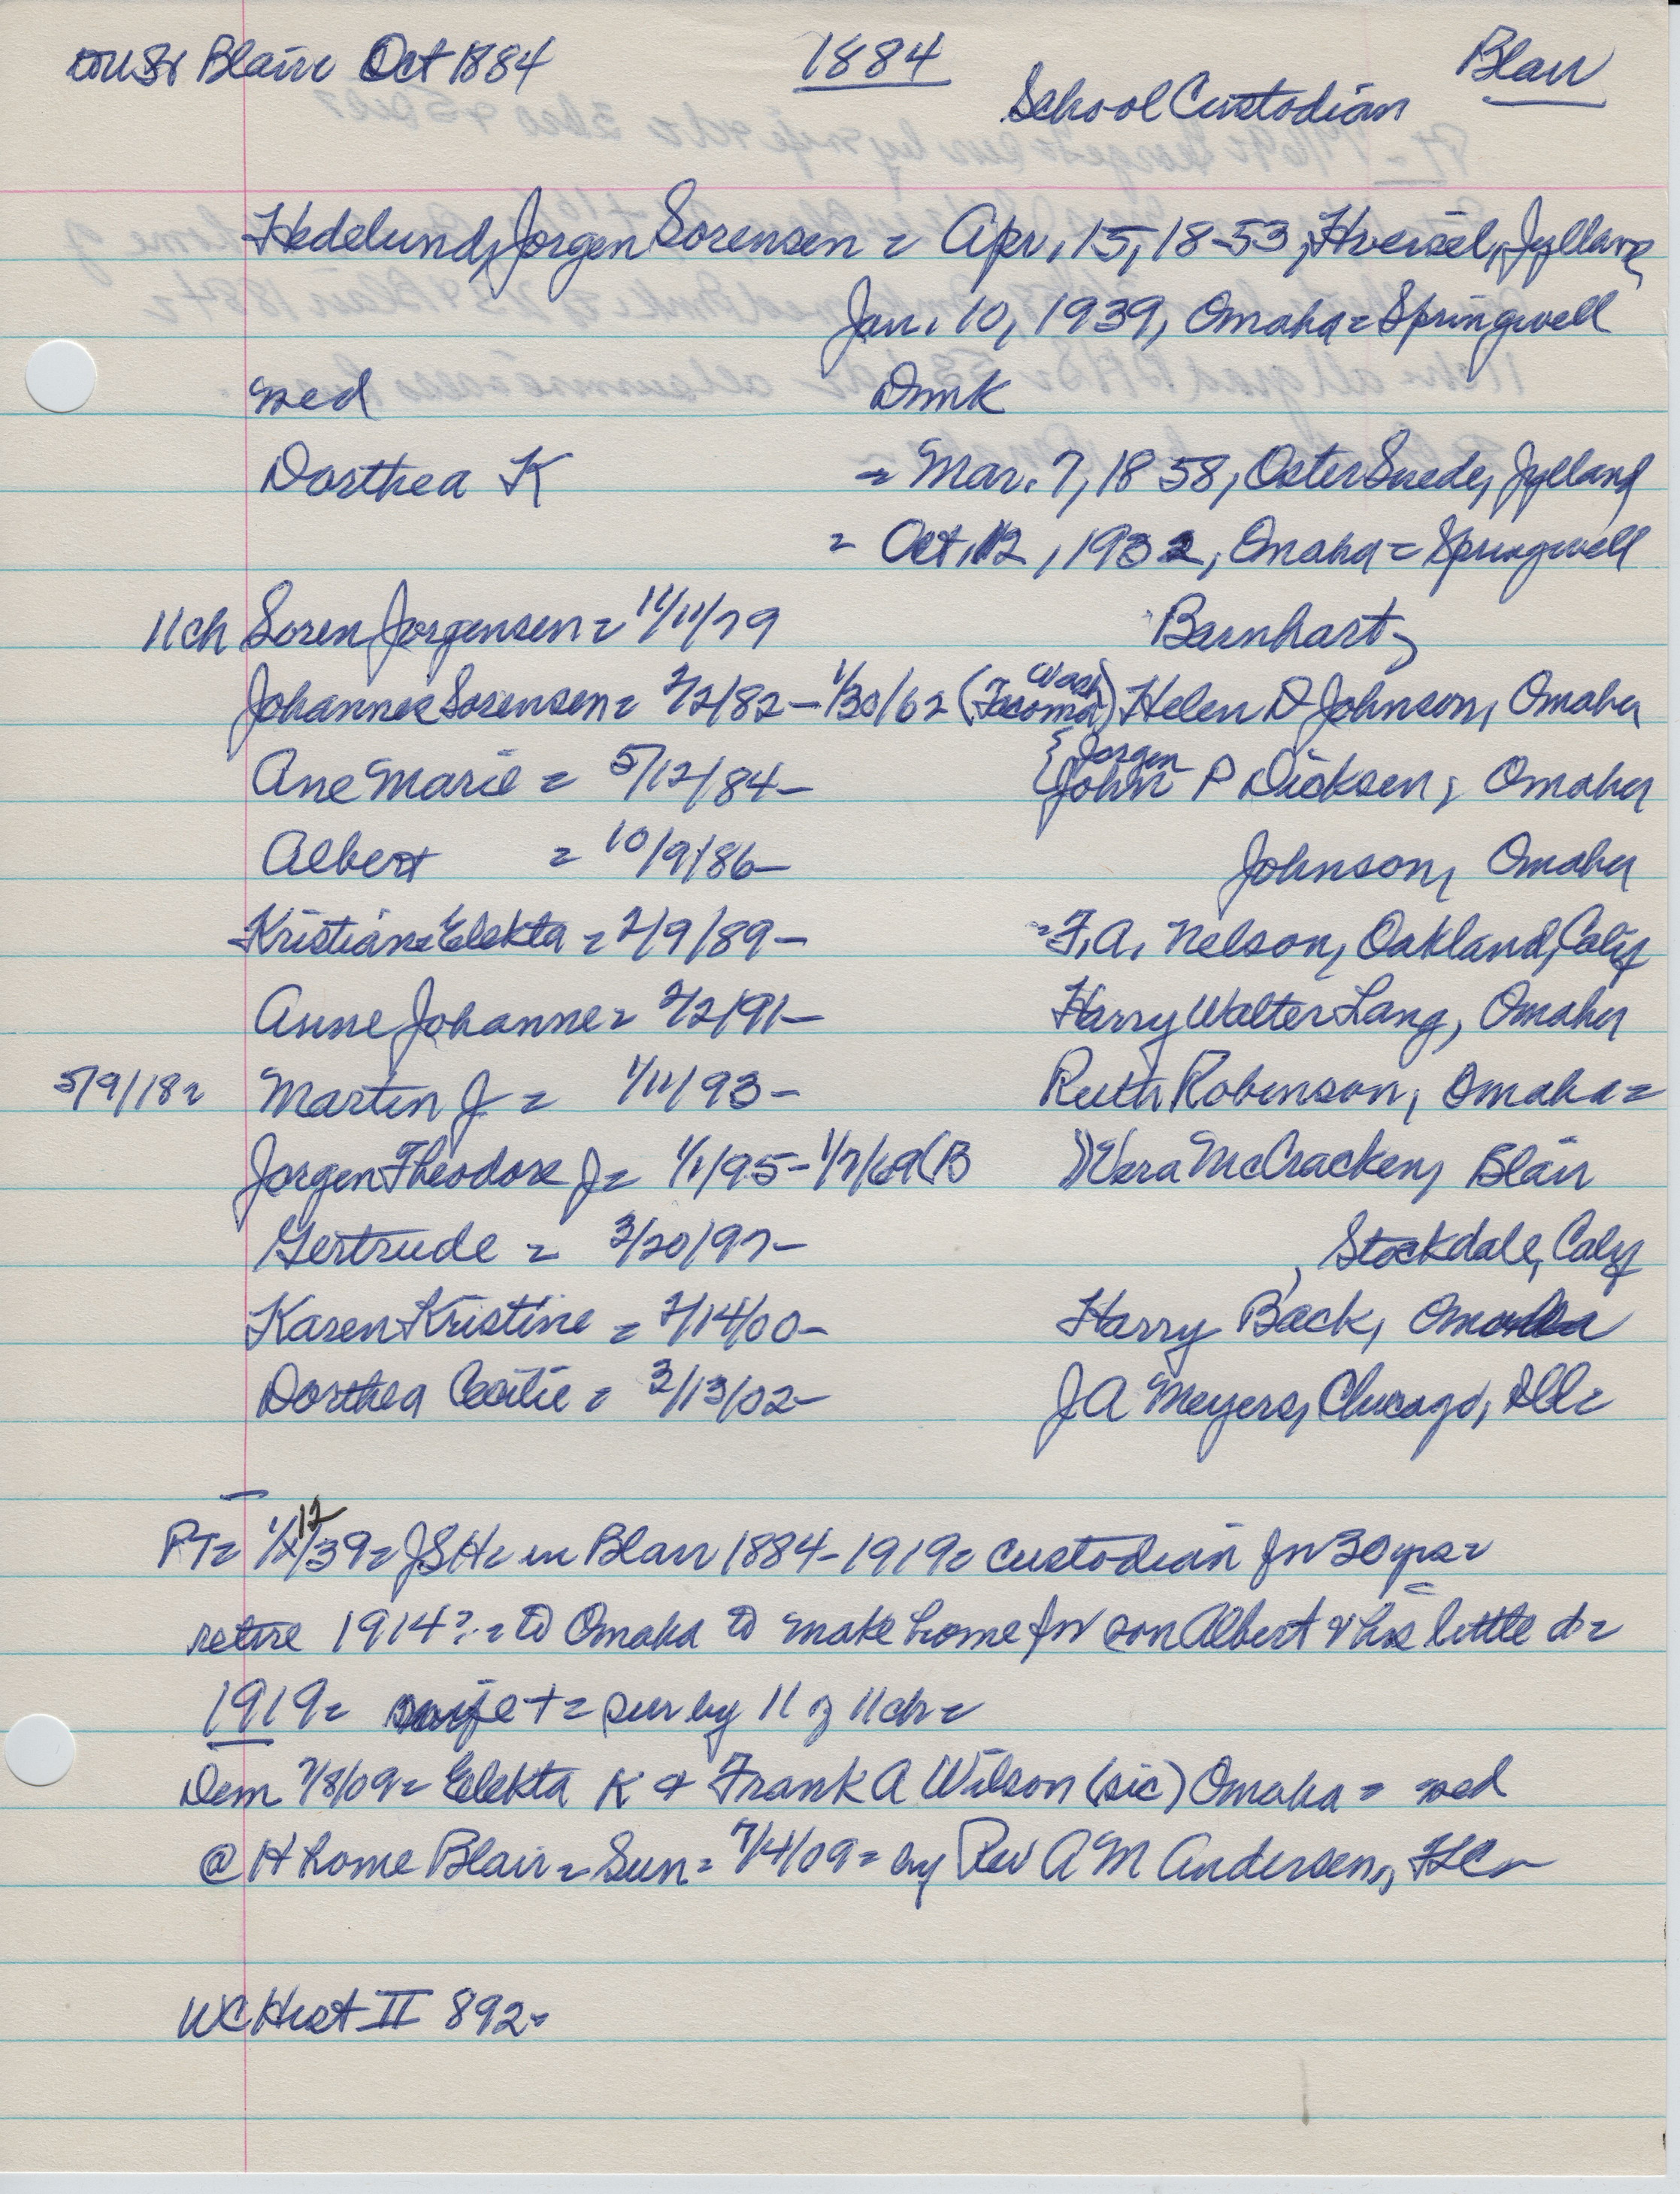 to Blair Oct 1884
1884
Blair
School Custodian
Hedelund, Jorgen Sorensen = Apr. 15, 1853, Hveisel, Jylland
Jan. 10, 1939, Omaha = Springwell
wed Dmk
Dorthea K = Mar. 7, 1858, Oster Snede, Jylland
= Oct. 12, 1932, Omaha = Springwell
11 ch Soren Jorgensen = 11/11/79 Barnhart,
Johannes Sorensen = 2/2/82 - 1/30/62 (Tacoma Wash) Helen D Johnson, Omaha
Ane Marie = 5/12/84 - {Jorgen John P Dicksen, Omaha
Albert = 10/9/86 - Johnson, Omaha
Kristiane Elekta = 2/9/89 - = F. A. Nelson, Oakland, Calif
Anne Johanne = 2/2/91 - Harry Walter Lang, Omaha
5/9/18 = Martin J = 1/11/93 - Ruth Robinson, Omaha =
Jorgen Theodore J = 1/1/95 - 1/7/69 (B )) Vera McCracken, Blair
Gertrude = 3/20/97 - , Stockdale, Calif
Karen Kristine = 2/14/00 - Harry Back, Omaha
Dorthea Cecilie = 3/13/02 - J A Meyers, Chicago, Ill =
PT = 1/12/39 = JSH = in Blair 1884 - 1919 = custodian for 30 yrs =
retire 1914? = to Omaha to make home for son Albert & his little d =
1919 = wife + = sur by 11 of 11 ch =
Dem 7/8/09 = Elekta K & Frank A Wilson (sic) Omaha = wed
@ H home Blair = Sun = 7/4/09 = by Rev A M Andersen,
WC Hist II 892 -